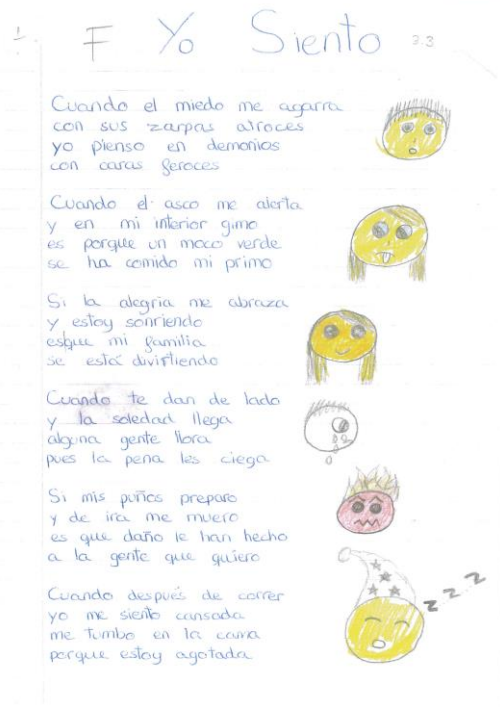 F Yo Siento 3.3
Cuando el miedo me agarra
con sus zarpas atroces
yo pienso en demonios
con caras feroces
Cuando el asco me alerta
y en mi interior gimo
es porque un moco verde
se ha comido mi primo
Si la alegria me abraza
y estoy sonriendo
esque mi familia
se está divirtiendo
Cuando te dan de lado
y la soledad llega
alguna gente llora
pues la pena les ciega
Si mis puños preparo
y de ira me muero
es que daño le han hecho
a la gente que quiero
Cuando después de correr
yo me siento cansada
me tumbo en la cama
porque estoy agotada
z z z